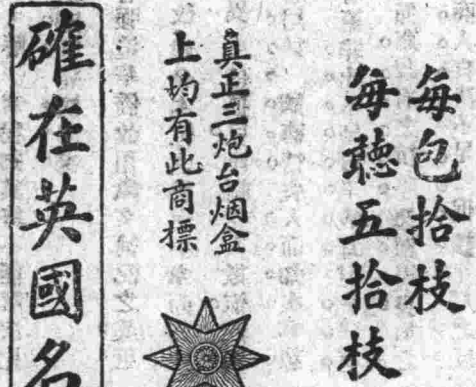 每包拾枝
每聽五拾枝
真正三炮台烟盒
上均有此商標
確在英國名